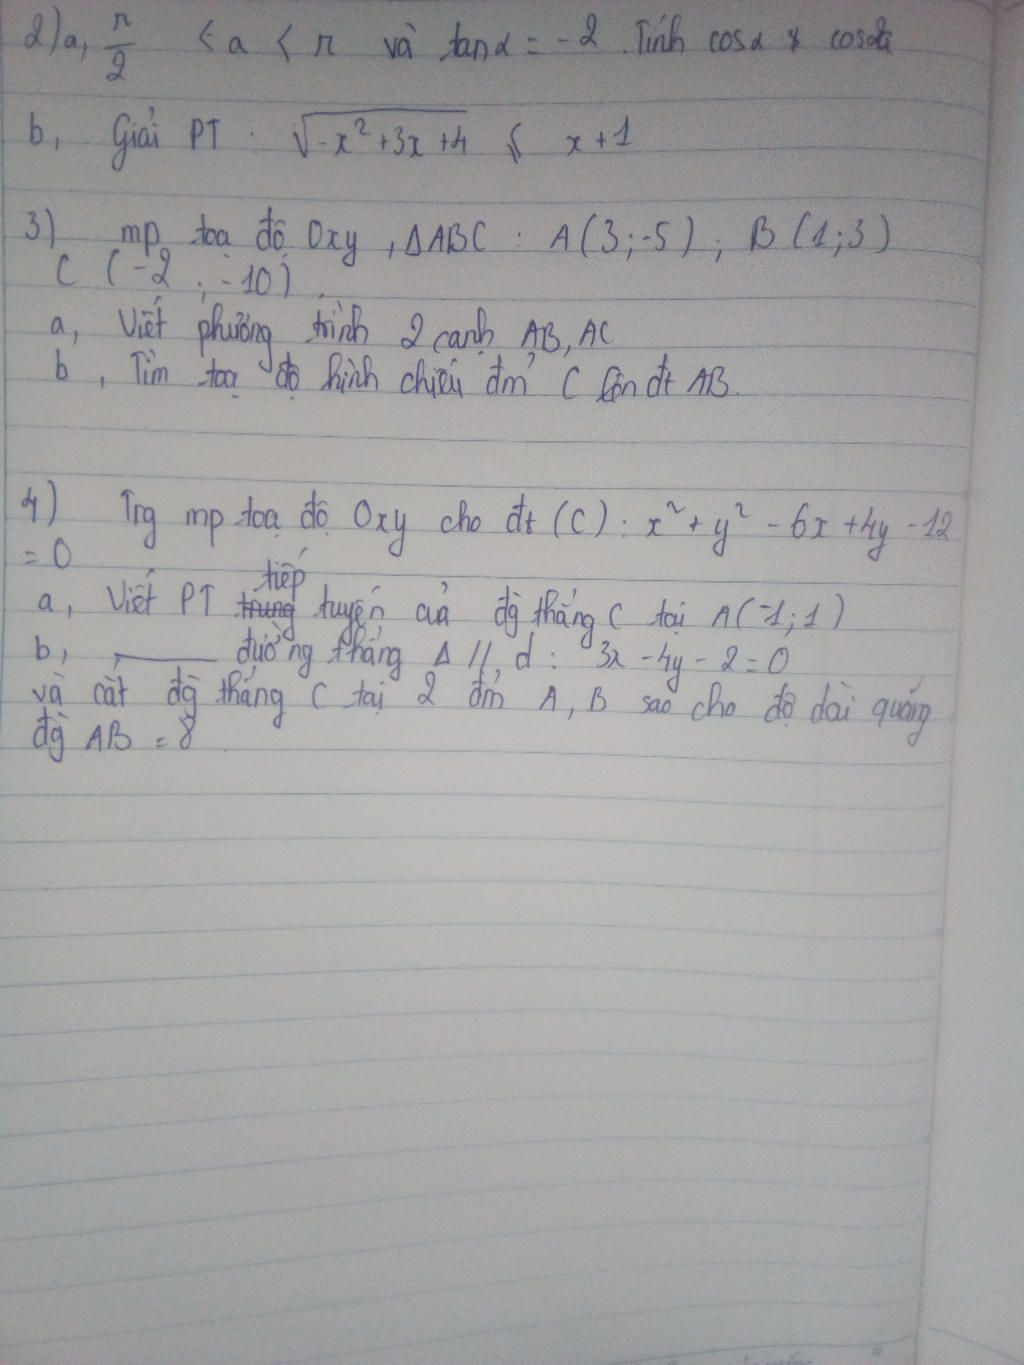 2) a, π/2 < a < π và tanα = -2. Tính cosα & cos2α
b, Giải PT : √(-x² + 3x + 4) ≤ x + 1
3) mp toạ độ Oxy, ΔABC : A(3;-5); B(1;3)
C (-2 ; -10).
a, Viết phương trình 2 cạnh AB, AC
b, Tìm toạ độ hình chiếu đm̉ C lên đt AB.
4) Trg mp toạ độ Oxy cho đt (C) : x² + y² - 6x + 4y - 12
= 0
tiếp
a, Viết PT trung tuyến của đg̀ thẳng C tại A(-1;1)
b, ,——— đường thẳng Δ // d : 3x - 4y - 2 = 0
và cắt đg̀ thẳng C tại 2 đm̉ A, B sao cho độ dài quãng
đg̀ AB = 8